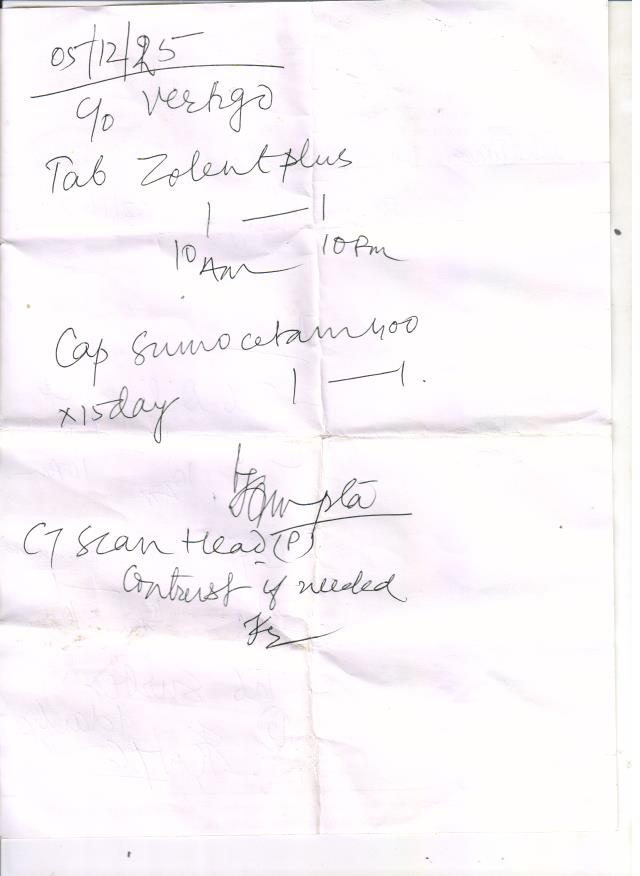 05/12/25
c/o Vertigo
Tab Zolent plus
1 — 1
10 Am 10 Pm
Cap Sumocetam 400
1 — 1.
x15 day
CT Scan Head (P)
Contrast if needed